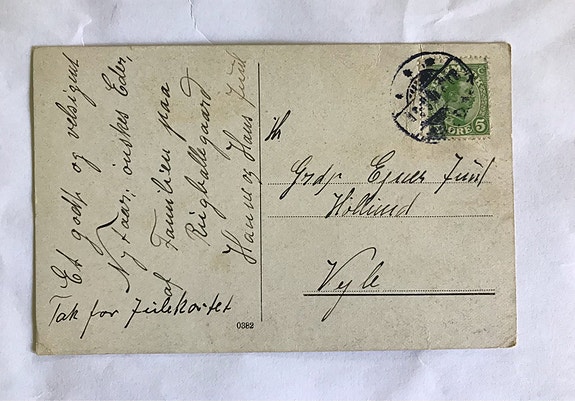 Et godt og velsignet
Nytaar; ønskes Eder,
af Familien paa
Ringballegaard
Hanne og Hans Juul
Tak for Julekortet
0382
Hr
Grdr Ejner Juul
Hollund
Vejle
ØRE 5